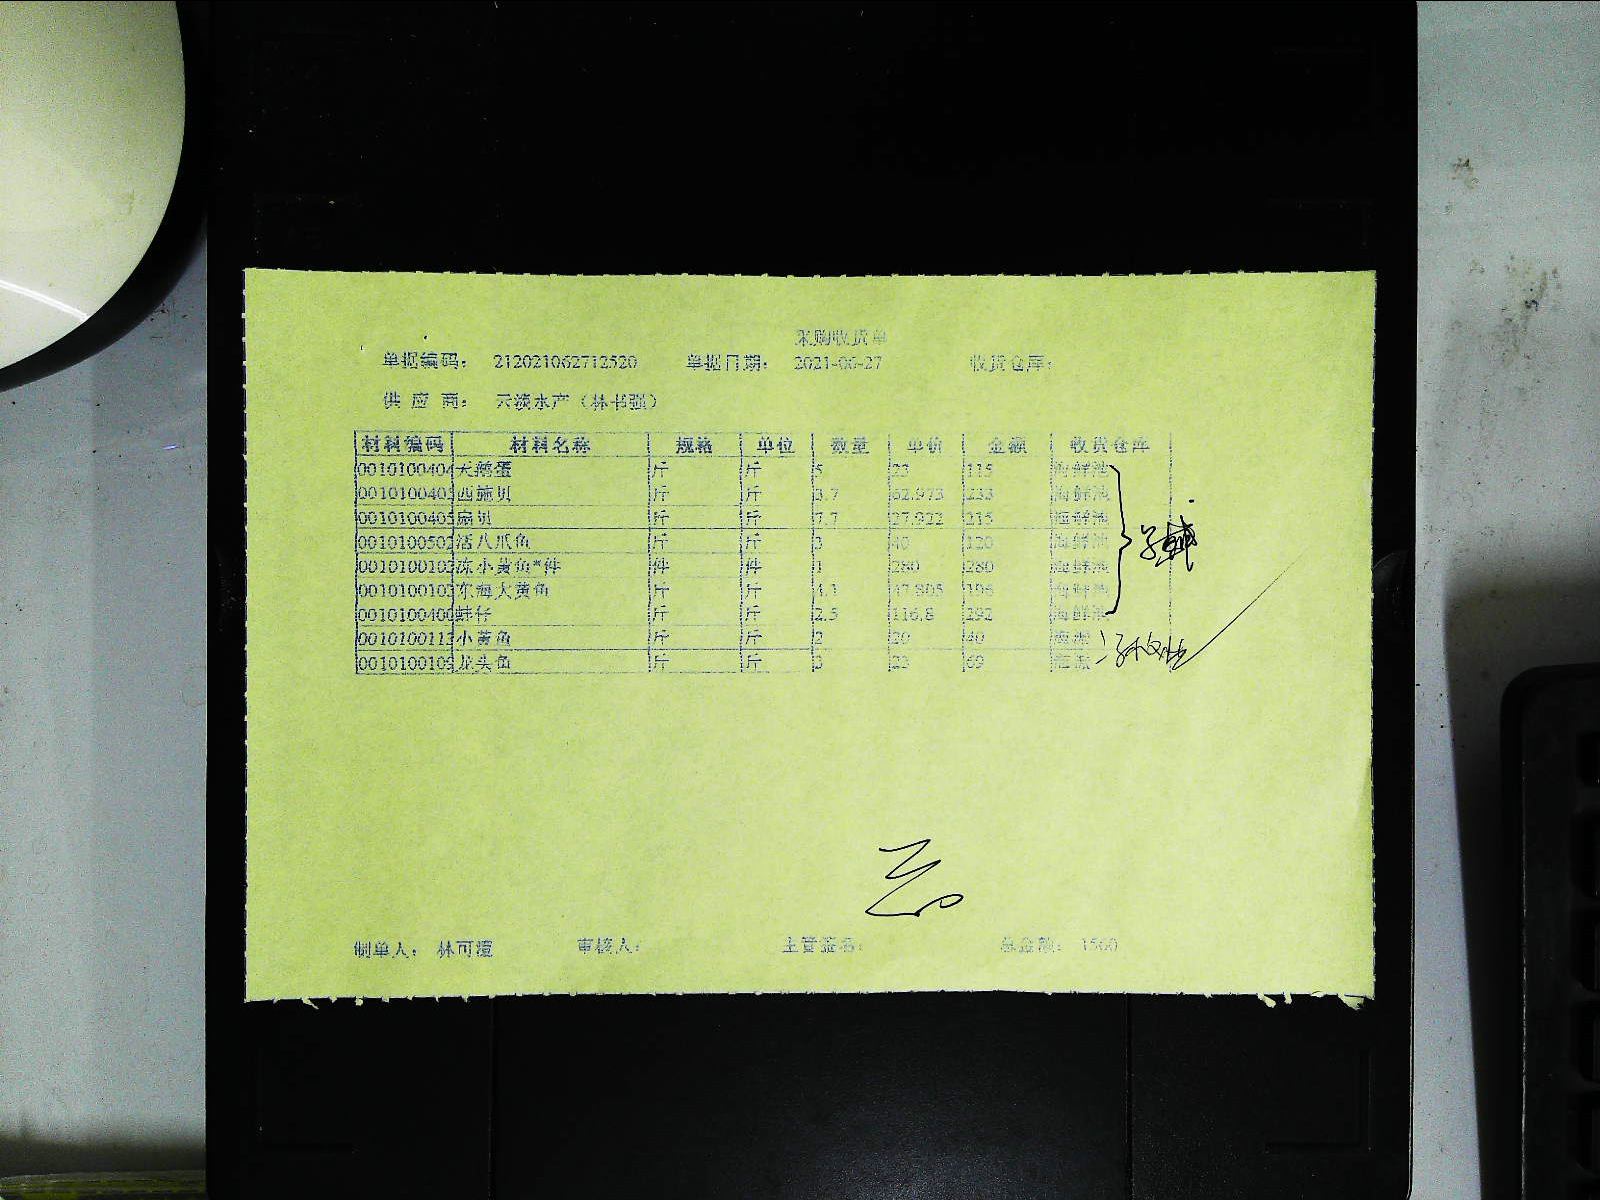 采购收货单
单据编码： 212021062712520 单据日期： 2021-06-27 收货仓库：
供 应 商： 云淡水产（林书强）
材料编码 材料名称 规格 单位 数量 单价 金额 收货仓库
0010100404 天鹅蛋 斤 斤 5 23 115 海鲜池
001010040 西施贝 斤 斤 3.7 62.973 233 海鲜池
001010040 扇贝 斤 斤 7.7 27.922 215 海鲜池
001010050 活八爪鱼 斤 斤 3 40 120 海鲜池
001010010 冻小黄鱼*件 件 件 1 280 280 海鲜池
001010010 东海大黄鱼 斤 斤 4.1 47.805 196 海鲜池
001010040 蛏仔 斤 斤 2.5 116.8 292 海鲜池
001010011 小黄鱼 斤 斤 2 20 40
001010010 龙头鱼 斤 斤 3 23 69
制单人： 林可 审核人： 主管签名： 总金额： 1560